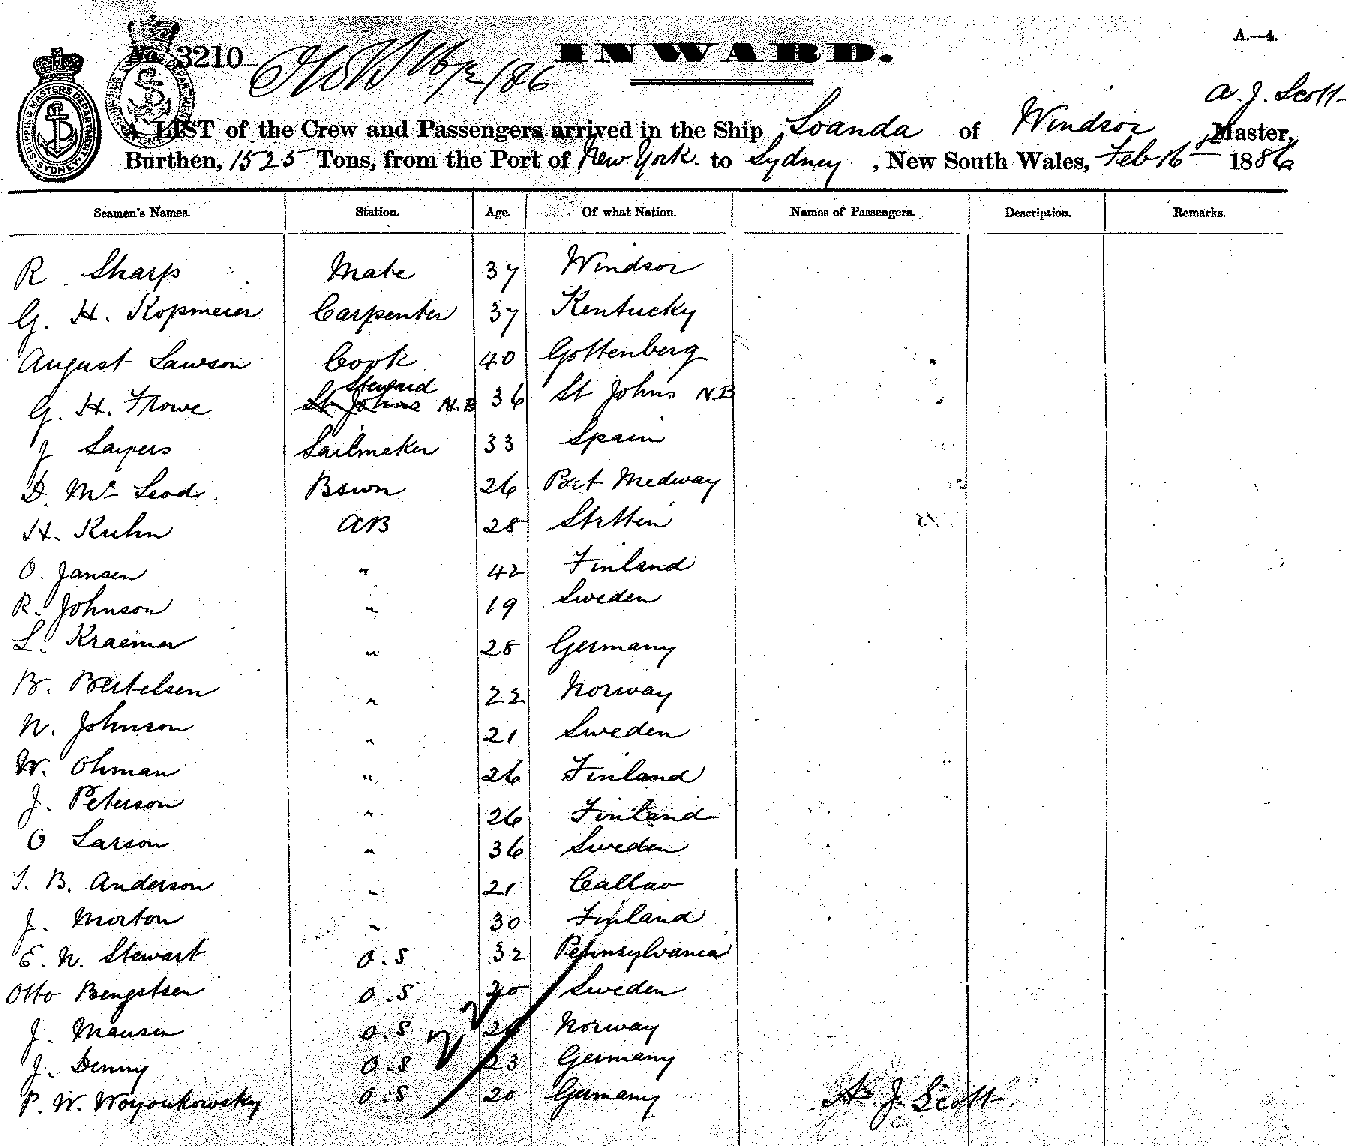 A.—4.
No. 3210 INWARD.
A. J. Scott
A LIST of the Crew and Passengers arrived in the Ship Loanda of Windsor Master,
Burthen, 1525 Tons, from the Port of New York to Sydney, New South Wales, Feb 16th 1886
Seamen's Names. Station. Age. Of what Nation. Names of Passengers. Description. Remarks.
R. Sharp Mate 37 Windsor
G. H. Kopmeier Carpenter 37 Kentucky
August Lawson Cook 40 Gottenberg
G. H. Trowe St Johns N.B Steward 36 St Johns N.B
J Sayers Sailmaker 33 Spain
D. Mc Leod Bswn 26 Port Medway
H. Kuhn AB 28 Stettin
O. Jansen " 42 Finland
R. Johnson " 19 Sweden
L. Kraemer " 28 Germany
B. Bertelsen " 22 Norway
N. Johnson " 21 Sweden
W. Ohman " 26 Finland
J. Peterson " 26 Finland
O Larson " 36 Sweden
J. B. Anderson " 21 Callao
J. Morton " 30 Finland
E. N. Stewart O.S 32 Pennsylvania
Otto Bengtsen O.S 20 Sweden
J. Mausen O.S Norway
J. Denny O.S 23 Germany
P. W. Woyoukowsky O.S 20 Germany
22
A. J. Scott